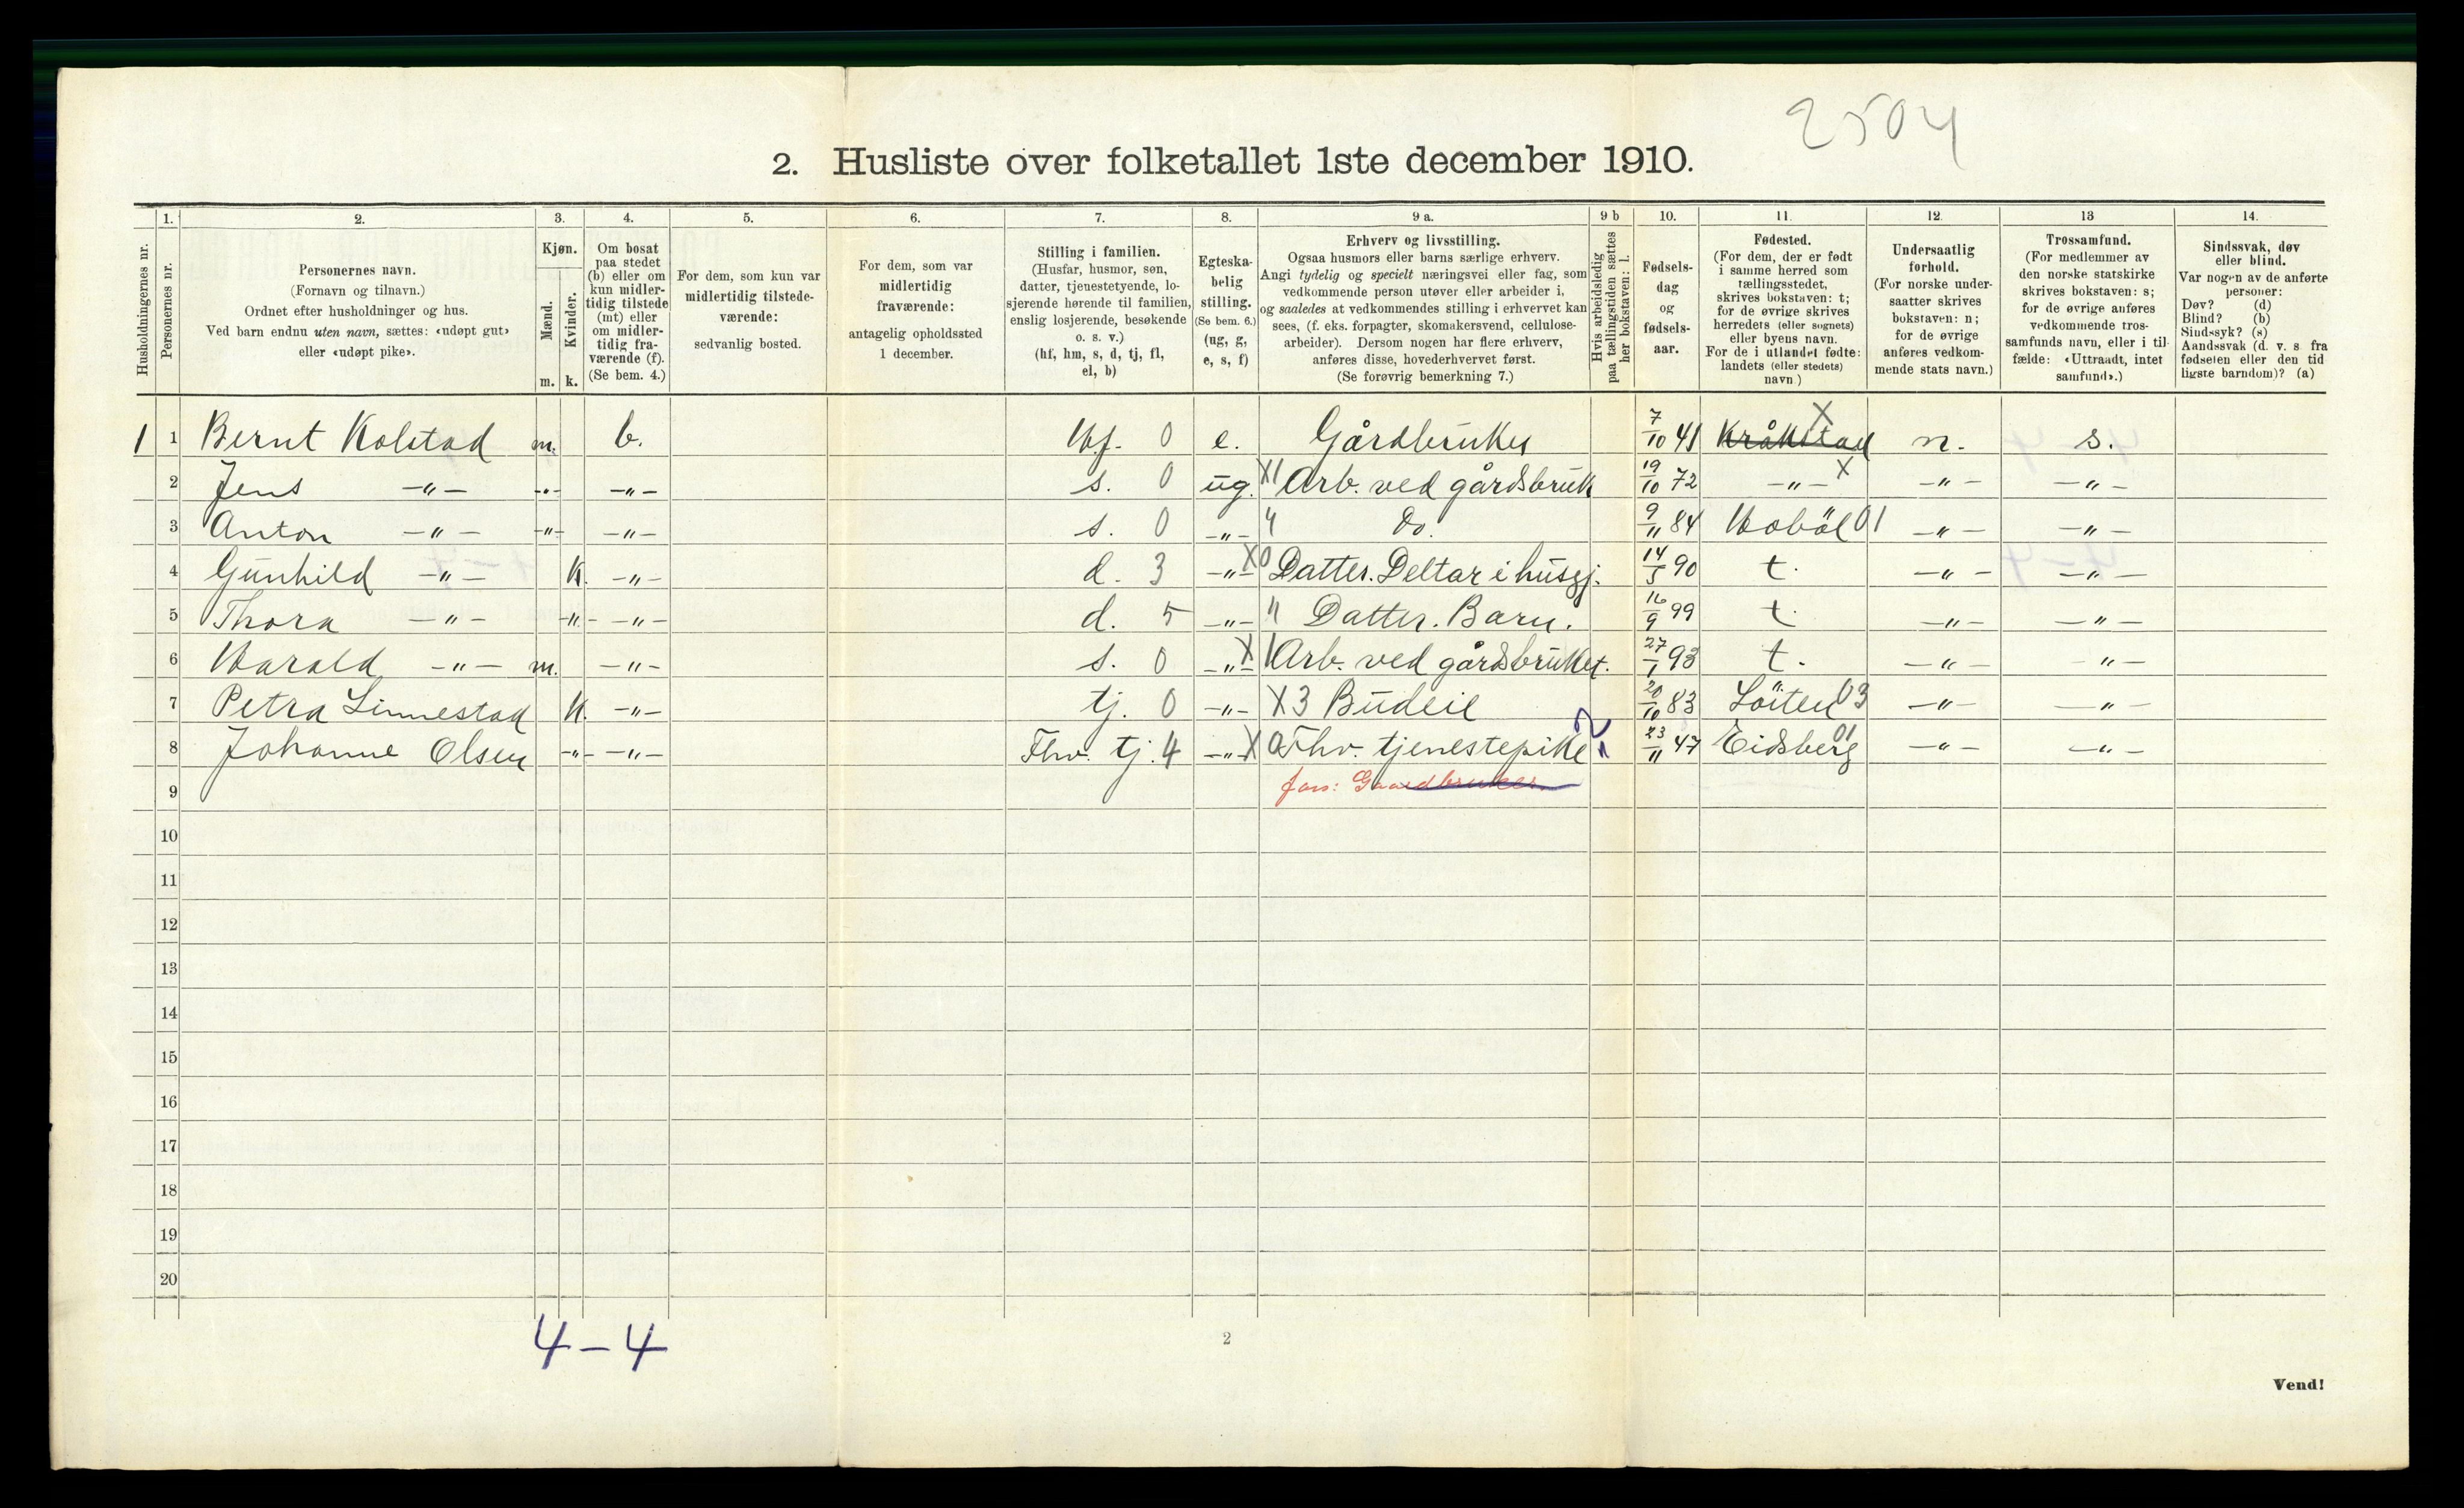 2504
2. Husliste over folketallet 1ste december 1910.
Husholdningernes nr.
1.
Personernes nr.
2.
Personernes navn.
(Fornavn og tilnavn.)
Ordnet efter husholdninger og hus.
Ved barn endnu uten navn, sættes: «udøpt gut»
eller «udøpt pike».
3.
Kjøn.
Mænd.
m.
Kvinder.
k.
4.
Om bosat
paa stedet
(b) eller om
kun midler-
tidig tilstede
(mt) eller
om midler-
tidig fra-
værende (f).
(Se bem. 4.)
5.
For dem, som kun var
midlertidig tilstede-
værende:
sedvanlig bosted.
6.
For dem, som var
midlertidig
fraværende:
antagelig opholdssted
1 december.
7.
Stilling i familien.
(Husfar, husmor, søn,
datter, tjenestetyende, lo-
sjerende hørende til familien,
enslig losjerende, besøkende
o. s. v.)
(hf, hm, s, d, tj, fl,
el, b)
8.
Egteska-
belig
stilling.
(Se bem. 6.)
(ug, g,
e, s, f)
9 a.
Erhverv og livsstilling.
Ogsaa husmors eller barns særlige erhverv.
Angi tydelig og specielt næringsvei eller fag, som
vedkommende person utøver eller arbeider i,
og saaledes at vedkommendes stilling i erhvervet kan
sees, (f. eks. forpagter, skomakersvend, cellulose-
arbeider). Dersom nogen har flere erhverv,
anføres disse, hovederhvervet først.
(Se forøvrig bemerkning 7.)
9 b
Hvis arbeidsledig
paa tællingstiden sættes
her bokstaven: l.
10.
Fødsels-
dag
og
fødsels-
aar.
11.
Fødested.
(For dem, der er født
i samme herred som
tællingsstedet,
skrives bokstaven: t;
for de øvrige skrives
herredets (eller sognets)
eller byens navn.
For de i utlandet fødte:
landets (eller stedets)
navn.)
12.
Undersaatlig
forhold.
(For norske under-
saatter skrives
bokstaven: n;
for de øvrige
anføres vedkom-
mende stats navn.)
13
Trossamfund.
(For medlemmer av
den norske statskirke
skrives bokstaven: s;
for de øvrige anføres
vedkommende tros-
samfunds navn, eller i til-
fælde: «Uttraadt, intet
samfund».)
14.
Sindssvak, døv
eller blind.
Var nogen av de anførte
personer:
Døv? (d)
Blind? (b)
Sindssyk? (s)
Aandssvak (d. v. s. fra
fødselen eller den tid-
ligste barndom)? (a)
1 1 Bernt Kolstad m. b. Hf. 0 e. Gårdbruker 7/10 41 Kråkstad X n. s.
2 Jens -"- -"- -"- s. 0 ug. X1 Arb. ved gårdsbruk 19/10 72 -"- X -"- -"-
3 Anton -"- -"- -"- s. 0 -"- " Do. 9/11 84 Hoböl 01 -"- -"-
4 Gunhild -"- K. -"- d. 3 -"- X0 Datter. Deltar i husgj. 14/5 90 t. -"- -"-
5 Thora -"- -"- -"- d. 5 -"- " Datter. Barn. 16/9 99 t. -"- -"-
6 Harald -"- m. -"- s. 0 -"- X1 Arb. ved gårdsbruket. 27/1 93 t. -"- -"-
7 Petra Linnestad K. -"- tj. 0 -"- X3 Budeie 20/10 83 Löiten 03 -"- -"-
8 Johanne Olsen -"- -"- Fhv. tj. 4 -"- X0 Fhv. tjenestepike 23/11 47 Eidsberg 01 -"- -"-
9 fors: Gaardbruker.
10
11
12
13
14
15
16
17
18
19
20
4-4
2
Vend!